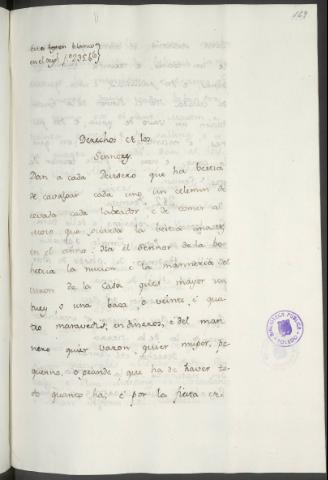 169
en el orig.l fº 235 (6)
Derechos de los
Sennores
Dan a cada Devisero que ha bestia
de cavalgar cada uno un celemin de
cevada cada labrador, e de comer al
mozo que guarda la bestia
en el anno. Ha el Sennor de la be
hetria la nucion e la manneria del
varon de la Casa quel mayor un
buey, o una baca, o veinte, e qua
tro maravedis, en dineros, e del man
nero quier varon, quier muger, pe
quenno, o grande que ha de haver to
do quanto ha; e por la fiesta
BIBLIOTECA PUBLICA
TOLEDO